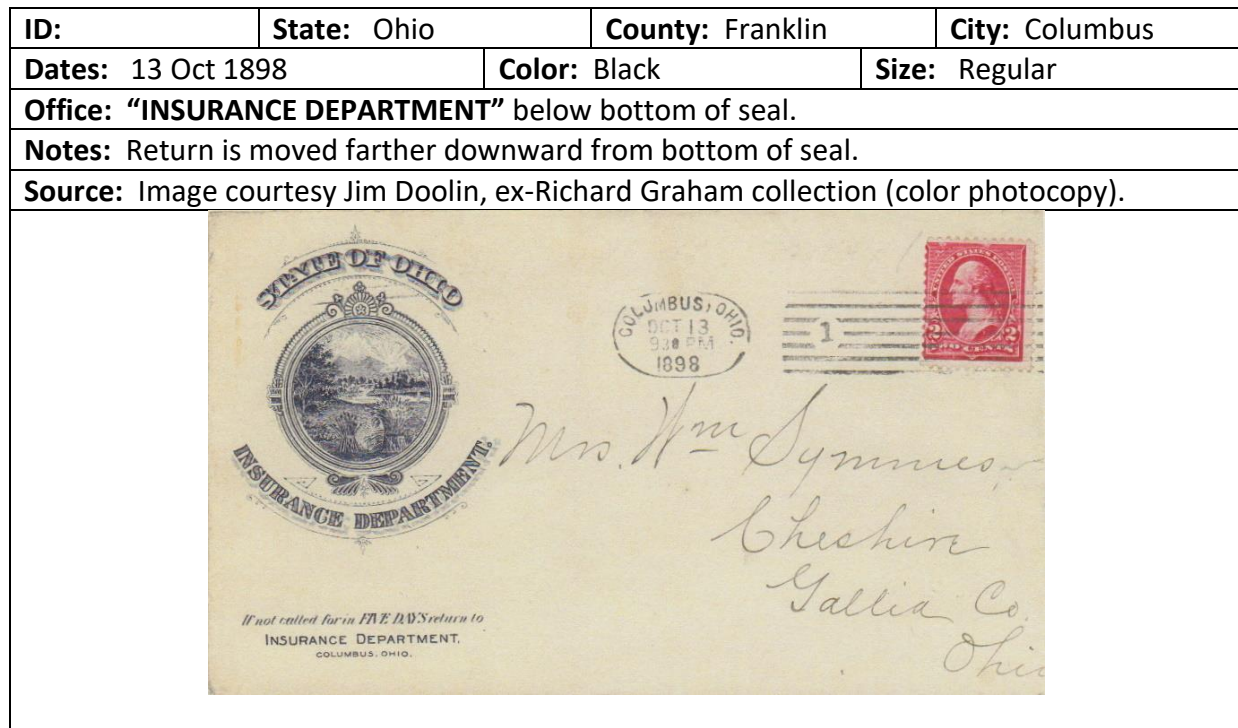 ID: State: Ohio County: Franklin City: Columbus
Dates: 13 Oct 1898 Color: Black Size: Regular
Office: “INSURANCE DEPARTMENT” below bottom of seal.
Notes: Return is moved farther downward from bottom of seal.
Source: Image courtesy Jim Doolin, ex-Richard Graham collection (color photocopy).
STATE OF OHIO
INSURANCE DEPARTMENT.
COLUMBUS, OHIO.
OCT 13
930 PM
1898
1
UNITED STATES POSTAGE
2 2
TWO CENTS
Mrs. Wm Symmes
Cheshire
Gallia Co.
Ohio
If not called for in FIVE DAYS return to
INSURANCE DEPARTMENT,
COLUMBUS, OHIO.